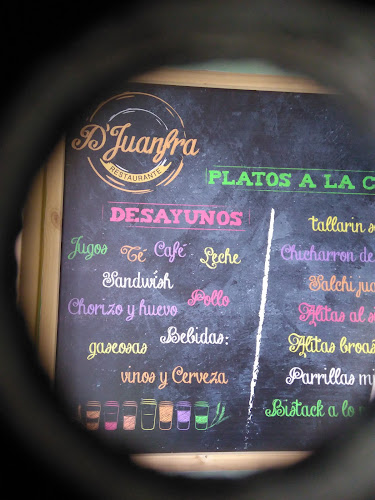 D'Juanfra
RESTAURANTE
PLATOS A LA
DESAYUNOS
Jugos Té Café Leche
Sandwish
Chorizo y huevo Pollo
Bebidas:
gaseosas
vinos y Cerveza
tallarin
Chicharron de
Salchi
Alitas al
Alitas
Parrillas
Bistack a lo